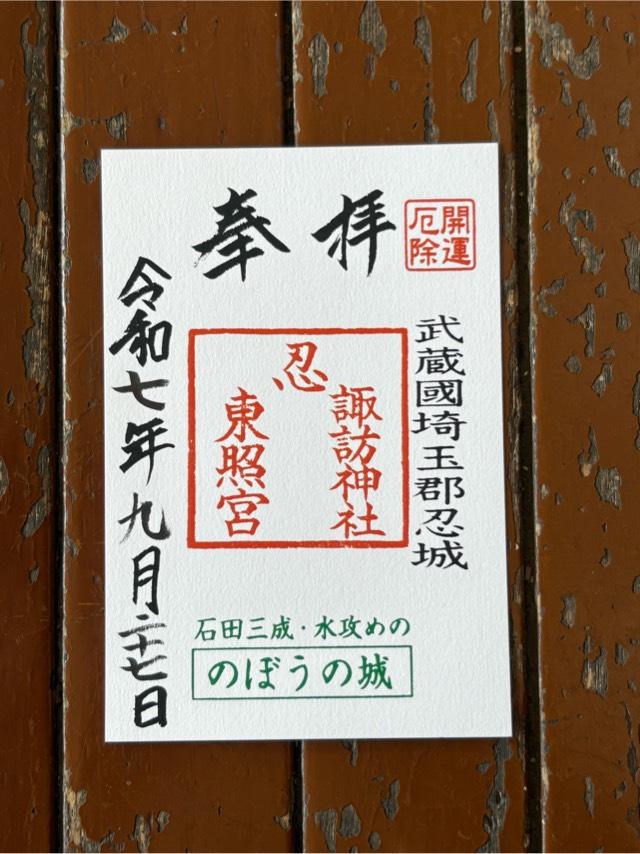 開運
厄除
奉拝
武蔵國埼玉郡忍城
忍
諏訪神社
東照宮
令和七年九月二十七日
石田三成・水攻めの
のぼうの城